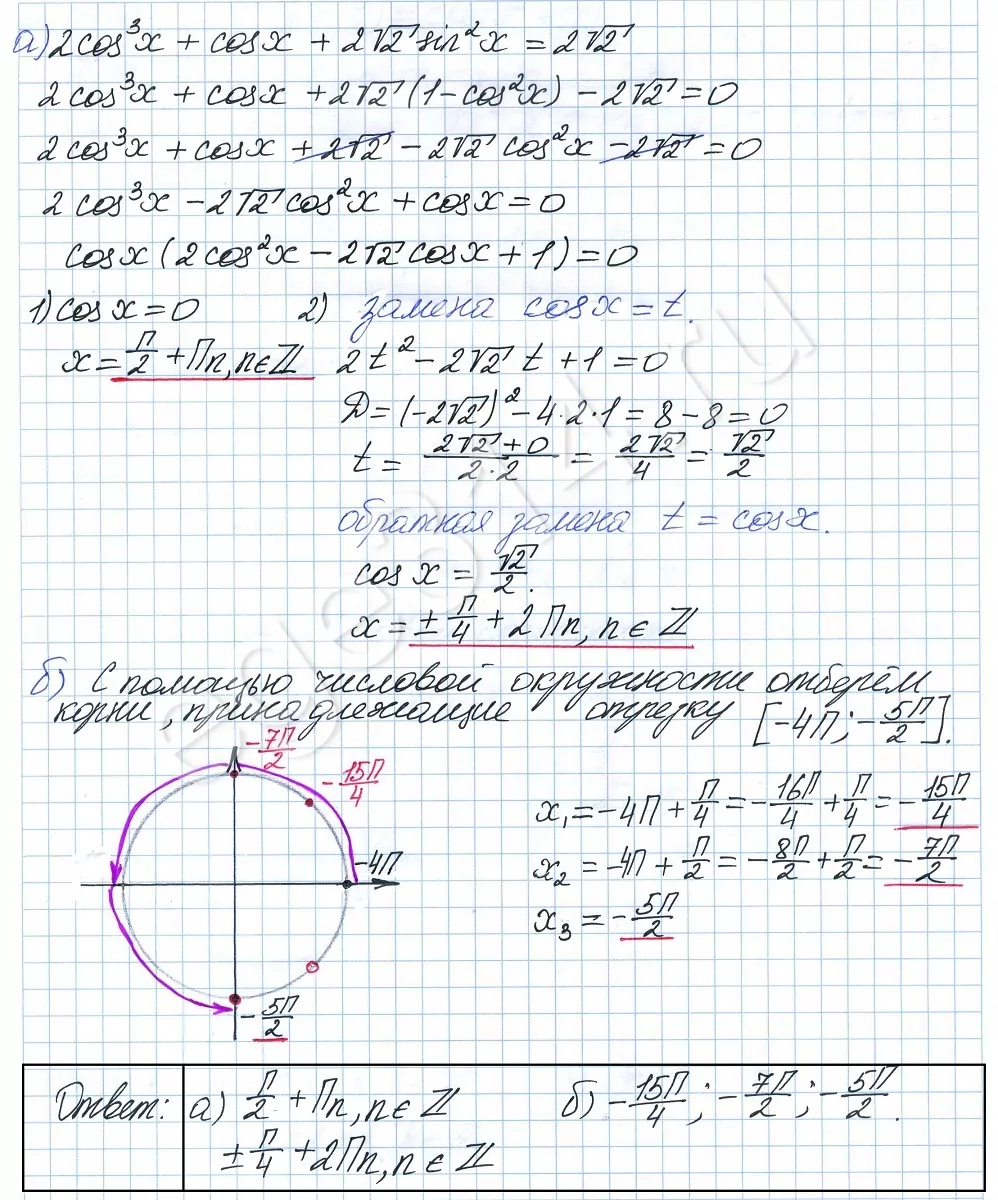 а) 2cos³x + cosx + 2√2 sin²x = 2√2
2cos³x + cosx + 2√2 (1 - cos²x) - 2√2 = 0
2cos³x + cosx + 2√2 - 2√2 cos²x - 2√2 = 0
2cos³x - 2√2 cos²x + cosx = 0
cosx (2cos²x - 2√2 cosx + 1) = 0
1) cosx = 0
x = П/2 + Пn, n ∈ Z
2) замена cosx = t.
2t² - 2√2 t + 1 = 0
D = (-2√2)² - 4·2·1 = 8 - 8 = 0
t = (2√2 + 0)/(2·2) = 2√2/4 = √2/2
обратная замена t = cosx.
cosx = √2/2.
x = ± П/4 + 2Пn, n ∈ Z
б) С помощью числовой окружности отберём
корни, принадлежащие отрезку [-4П; -5П/2].
-7П/2
-15П/4
-4П
-5П/2
x₁ = -4П + П/4 = -16П/4 + П/4 = -15П/4
x₂ = -4П + П/2 = -8П/2 + П/2 = -7П/2
x₃ = -5П/2
Ответ: а) П/2 + Пn, n ∈ Z
± П/4 + 2Пn, n ∈ Z
б) -15П/4; -7П/2; -5П/2.